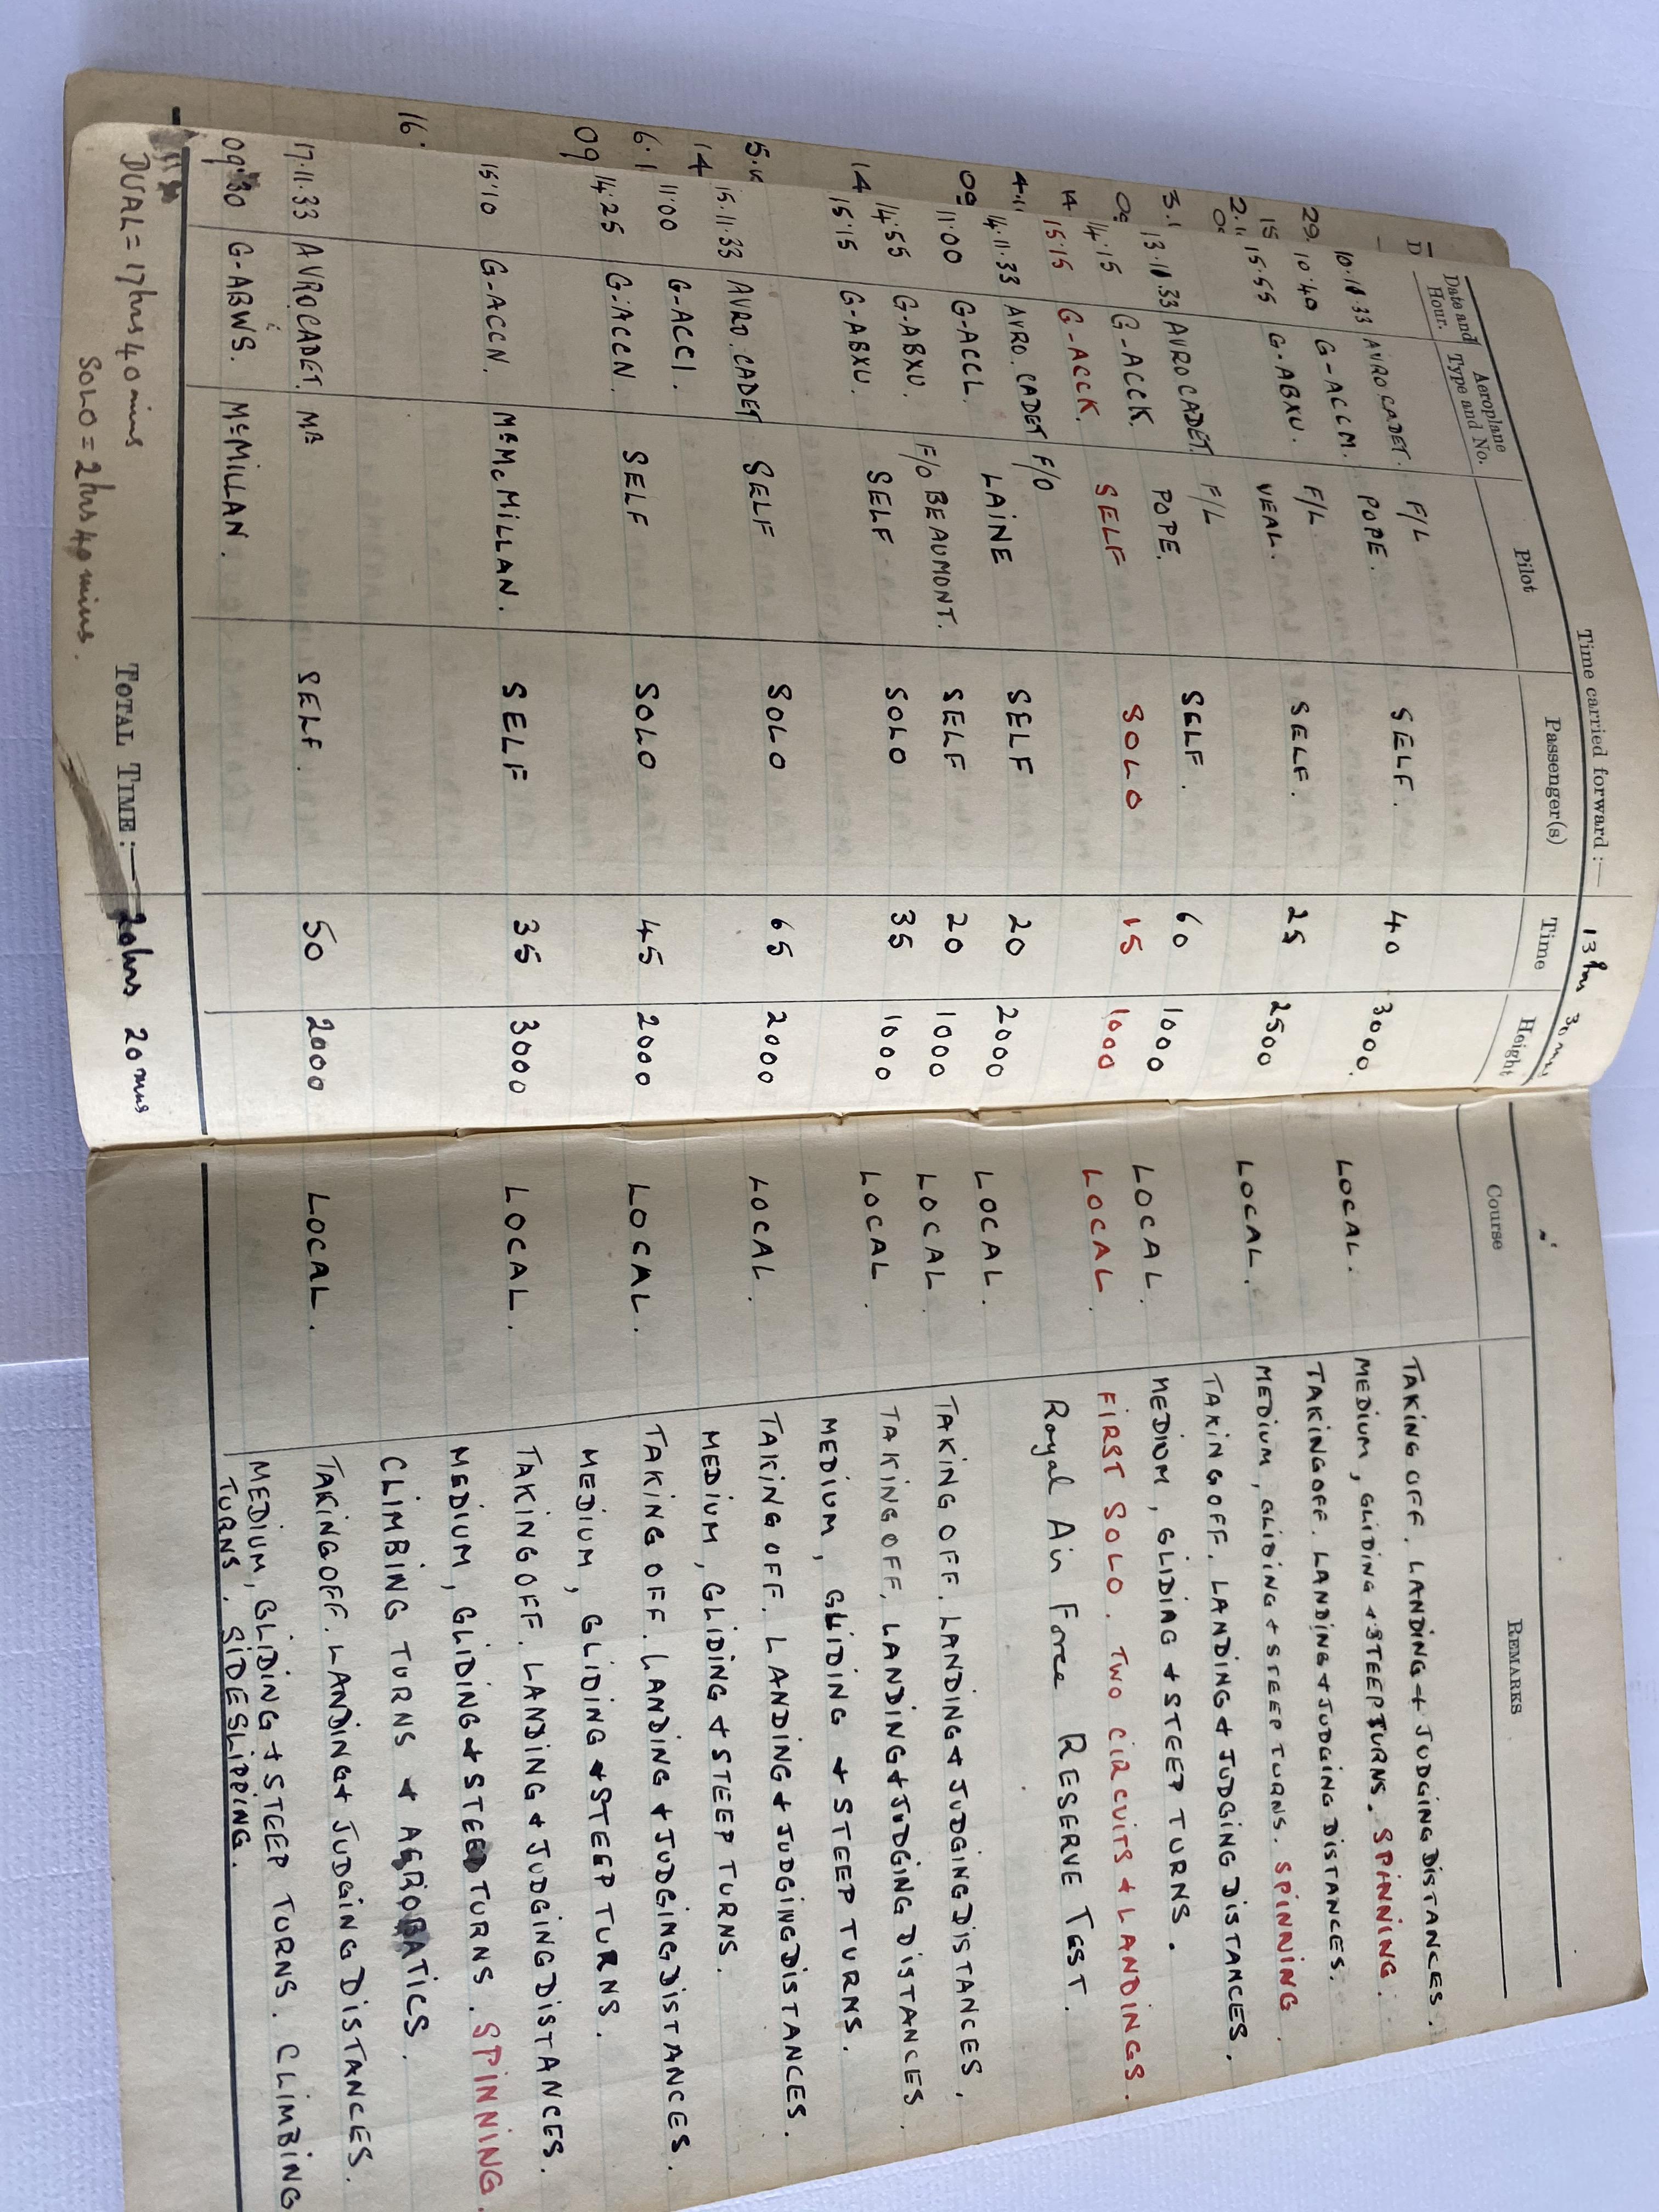 Time carried forward :— 13 hrs 30 mns
Date and Hour. Aeroplane Type and No. Pilot Passenger(s) Time Height Course REMARKS
10.11.33 AVRO CADET. F/L SELF. 40 3000. LOCAL. TAKING OFF. LANDING + JUDGING DISTANCES.
10.40 G-ACCM. POPE. MEDIUM, GLIDING + STEEP TURNS. SPINNING.
F/L. SELF. 25 2500 LOCAL. TAKING OFF. LANDING + JUDGING DISTANCES.
15.55 G-ABXU. VEAL. MEDIUM, GLIDING + STEEP TURNS. SPINNING.
13.11.33 AVRO CADET. F/L SELF. 60 1000 LOCAL. TAKING OFF. LANDING + JUDGING DISTANCES.
14.15 G-ACCK. POPE. MEDIUM, GLIDING + STEEP TURNS.
15.15 G-ACCK. SELF SOLO 15 1000 LOCAL. FIRST SOLO. TWO CIRCUITS + LANDINGS.
14.11.33 AVRO. CADET F/O SELF 20 2000 LOCAL. Royal Air Force RESERVE TEST.
LAINE
11.00 G-ACCL. F/O BEAUMONT. SELF 20 1000 LOCAL. TAKING OFF. LANDING + JUDGING DISTANCES.
14.55 G-ABXU. SELF SOLO 35 1000 LOCAL. TAKING OFF. LANDING + JUDGING DISTANCES.
15.15 G-ABXU. MEDIUM, GLIDING + STEEP TURNS.
15.11.33 AVRO. CADET SELF SOLO 65 2000 LOCAL. TAKING OFF. LANDING + JUDGING DISTANCES.
11.00 G-ACCI. MEDIUM, GLIDING + STEEP TURNS.
14.25 G-ACCN. SELF SOLO 45 2000 LOCAL. TAKING OFF. LANDING + JUDGING DISTANCES.
MEDIUM, GLIDING + STEEP TURNS.
15.10 G-ACCN. MR McMILLAN. SELF 35 3000 LOCAL. TAKING OFF. LANDING + JUDGING DISTANCES.
MEDIUM, GLIDING + STEEP TURNS. SPINNING.
CLIMBING TURNS + AEROBATICS.
17.11.33 AVRO CADET. MR SELF. 50 2000 LOCAL. TAKING OFF. LANDING + JUDGING DISTANCES.
09.30 G-ABWS. McMILLAN. MEDIUM, GLIDING + STEEP TURNS. CLIMBING
TURNS. SIDESLIPPING.
DUAL = 17hrs 40 mins TOTAL TIME :— 20hrs 20 mns
SOLO = 2hrs 40 mins.